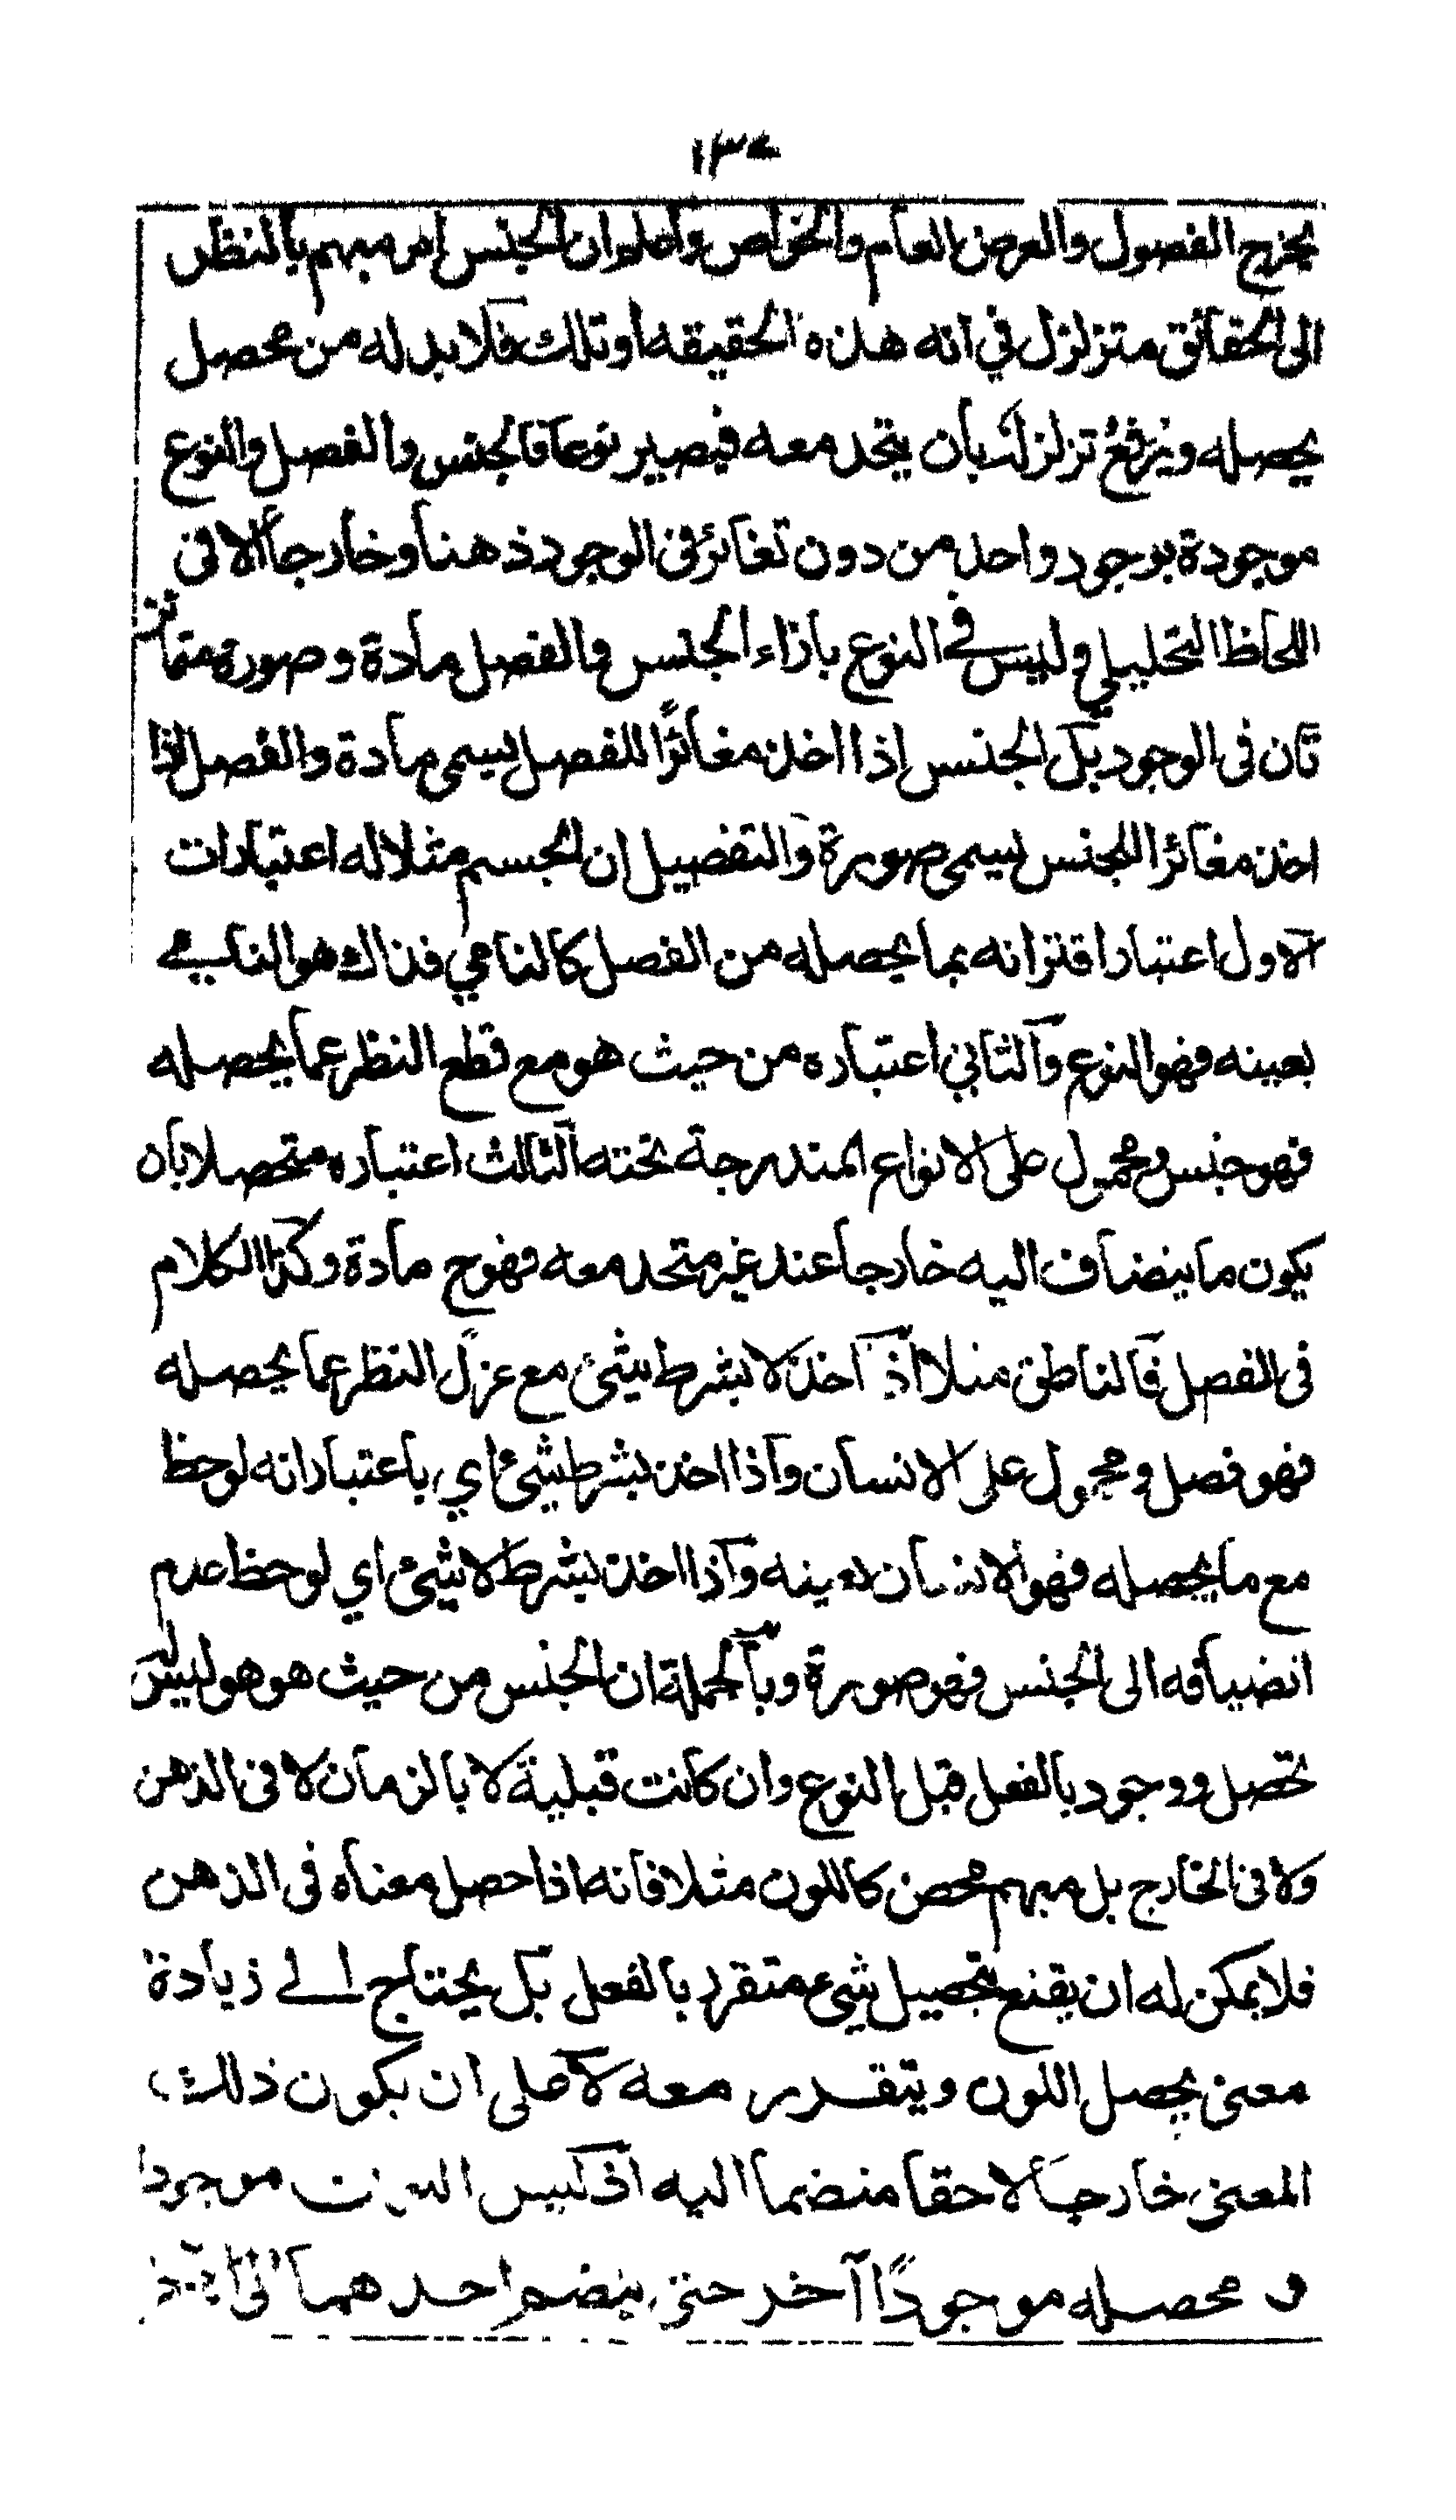 ١٣٤
يخرج الفصول والعرض العام والخواص واعلم ان الجنس امر مبهم بالنظر
الى الحقائق متزلزل في انه هذه الحقيقه او تلك فلا بد له من محصل
يحصله ويرفع تزلزله بان يتحد معه فيصير نوعا فالجنس والفصل والنوع
موجودة بوجود واحد من دون تغائر فى الوجود ذهنا وخارجاً الا فى
اللحاظ التحليلي وليس في النوع بازاء الجنس والفصل مادة وصورة متغائر
تان فى الوجود بل الجنس اذا اخذ مغائرًا للفصل يسمى مادة والفصل اذا
اخذ مغائرا للجنس يسمى صورة والتفصيل ان الجسم مثلا له اعتبارات
الاول اعتبار اقترانه بما يحصله من الفصل كالنامي فذاك هو النامي
بعينه فهو النوع والثاني اعتباره من حيث هو مع قطع النظر عما يحصله
فهو جنس ومحمول على الانواع المندرجة تحته الثالث اعتباره متحصلا بان
يكون ما ينضاف اليه خارجا عنه غير متحد معه فهو ح مادة وكذا الكلام
فى الفصل فالناطق مثلا اذا اخذ لا بشرط شئ مع عزل النظر عما يحصله
فهو فصل ومحمول على الانسان واذا اخذ بشرط شئ اي باعتبار انه لوحظ
مع ما يحصله فهو الانسان بعينه واذا اخذ بشرط لا شئ اي لوحظ عدم
انضيافه الى الجنس فهو صورة وبالجملة ان الجنس من حيث هو هو ليس له
تحصل ووجود بالفعل قبل النوع وان كانت قبلية لا بالزمان لا فى الذهن
ولا فى الخارج بل مبهم محض كاللون مثلا فانه اذا حصل معناه فى الذهن
فلا يمكن له ان يقنع بتحصيل شيء متقرر بالفعل بل يحتاج الى زيادة
معنى يحصل اللون ويتقرر معه لا على ان يكون ذلك
المعنى خارجا لاحقا منضما اليه اذ ليس اللون موجودا
و محصله موجودًا آخر حتى ينضم احدهما